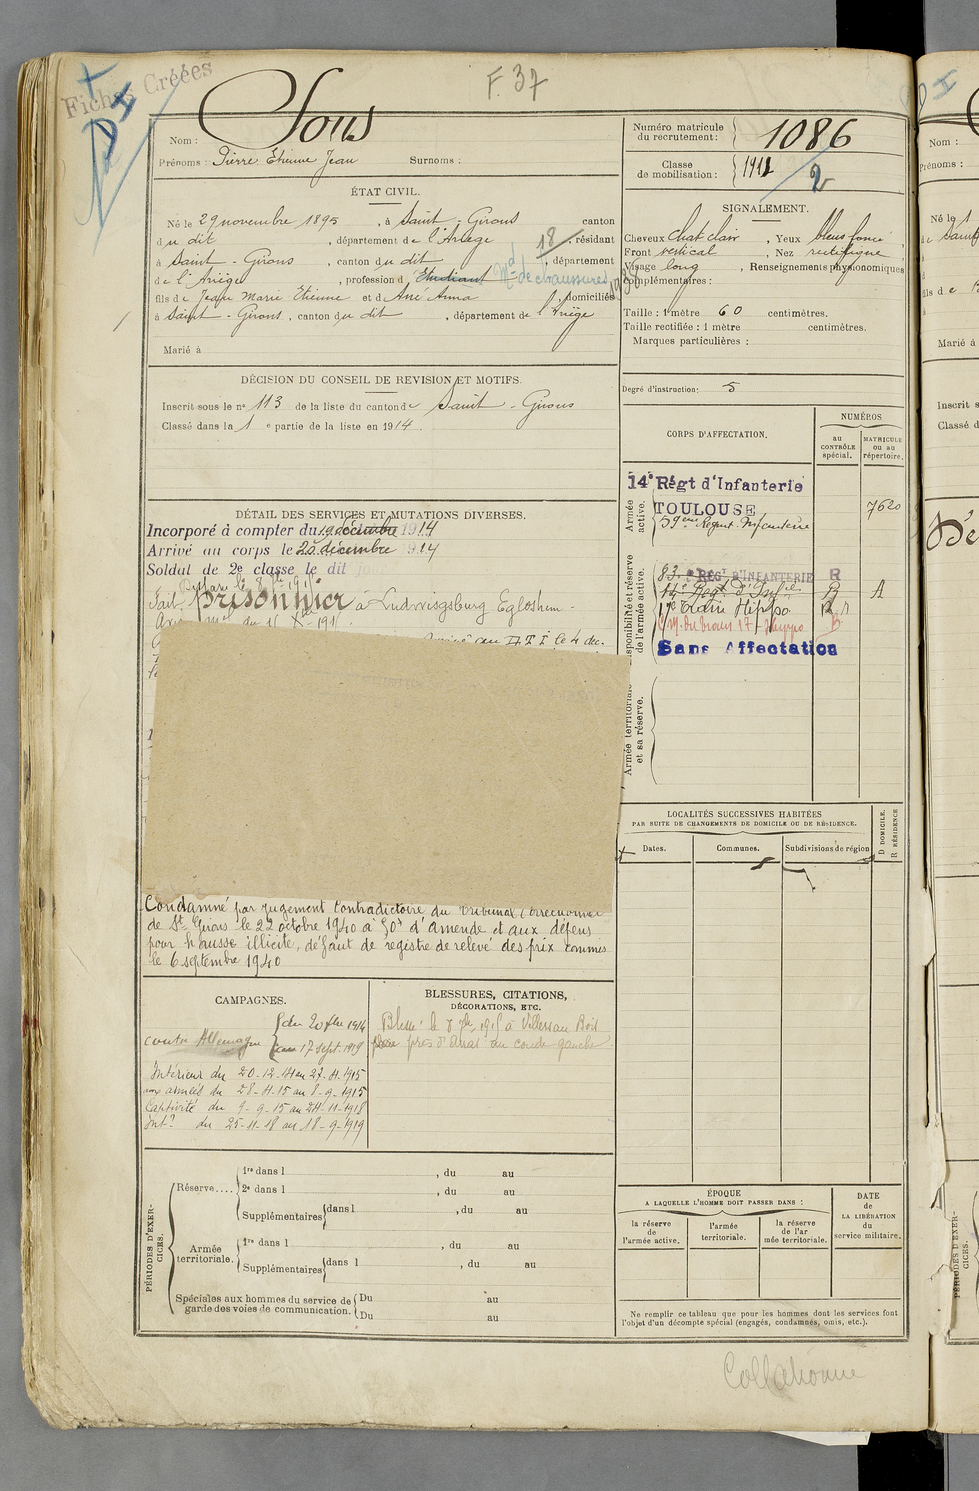 Fiches Créées
F. 37
Nom : Sous
Prénoms : Pierre Etienne Jean Surnoms :
Numéro matricule du recrutement : 1086
Classe de mobilisation : 1912
2
ÉTAT CIVIL.
Né le 29 novembre 1895, à Saint-Girons canton
du dit, département de l'Ariège 18, résidant
à Saint-Girons, canton du dit, département
de l'Ariège, profession d'Etudiant Md de chaussures
fils de Jean Marie Etienne et d Ané Anna, domiciliés
à Saint-Girons, canton du dit, département de l'Ariège
Marié à
SIGNALEMENT.
Cheveux chat clair, Yeux bleus foncé
Front vertical, Nez rectiligne
Visage long, Renseignements physionomiques
complémentaires :
Taille : 1 mètre 60 centimètres.
Taille rectifiée : 1 mètre centimètres.
Marques particulières :
Degré d'instruction : 5
DÉCISION DU CONSEIL DE REVISION ET MOTIFS.
Inscrit sous le n° 113 de la liste du canton de Saint-Girons
Classé dans la 1e partie de la liste en 1914.
CORPS D'AFFECTATION.
NUMÉROS
au CONTRÔLE spécial.
MATRICULE ou au répertoire.
Armée active.
14e Régt d'Infanterie
TOULOUSE
7620
59ème Régent Infanterie
Disponibilité et réserve de l'armée active.
83e RÉGT D'INFANTERIE R
14e Regt d'Infie R A
17e Hippo
17 Hippo
Sans Affectation
Armée territoriale et sa réserve.
DÉTAIL DES SERVICES ET MUTATIONS DIVERSES.
Incorporé à compter du 19 décembre 1914
Arrivé au corps le 20 décembre 1914
Soldat de 2e classe le dit jour
Fait prisonnier à Ludwigsburg Eglosheim
Condamné par jugement contradictoire du Tribunal Correctionnel
de St Girons le 22 octobre 1940 à 50f d'amende et aux dépens
pour hausse illicite, défaut de registre de relevé des prix commis
le 6 septembre 1940
LOCALITÉS SUCCESSIVES HABITÉES
PAR SUITE DE CHANGEMENTS DE DOMICILE OU DE RÉSIDENCE.
Dates.
Communes.
Subdivisions de région
D DOMICILE.
R RÉSIDENCE
CAMPAGNES.
contre Allemagne du 20 Xbre 1914
au 17 sept. 1919
Intérieur du 20-12-14 au 27-4-1915
aux armées du 28-4-15 au 8-9-1915
Captivité du 9-9-15 au 24-11-1918
Intr du 25-11-18 au 18-9-1919
BLESSURES, CITATIONS,
DÉCORATIONS, ETC.
Blessé le 8 7bre 1915 à
près d'Arras au coude gauche
PÉRIODES D'EXERCICES.
Réserve....
1re dans l , du au
2e dans l , du au
Supplémentaires dans l , du au
Armée territoriale.
1re dans l , du au
Supplémentaires dans l , du au
Spéciales aux hommes du service de garde des voies de communication.
Du au
Du au
ÉPOQUE
A LAQUELLE L'HOMME DOIT PASSER DANS :
la réserve de l'armée active.
l'armée territoriale.
la réserve de l'armée territoriale.
DATE de LA LIBÉRATION du service militaire.
Ne remplir ce tableau que pour les hommes dont les services font
l'objet d'un décompte spécial (engagés, condamnés, omis, etc.).
Collationné
Nom :
Prénoms :
Né le 1
Marié à
Inscrit s
Classé d